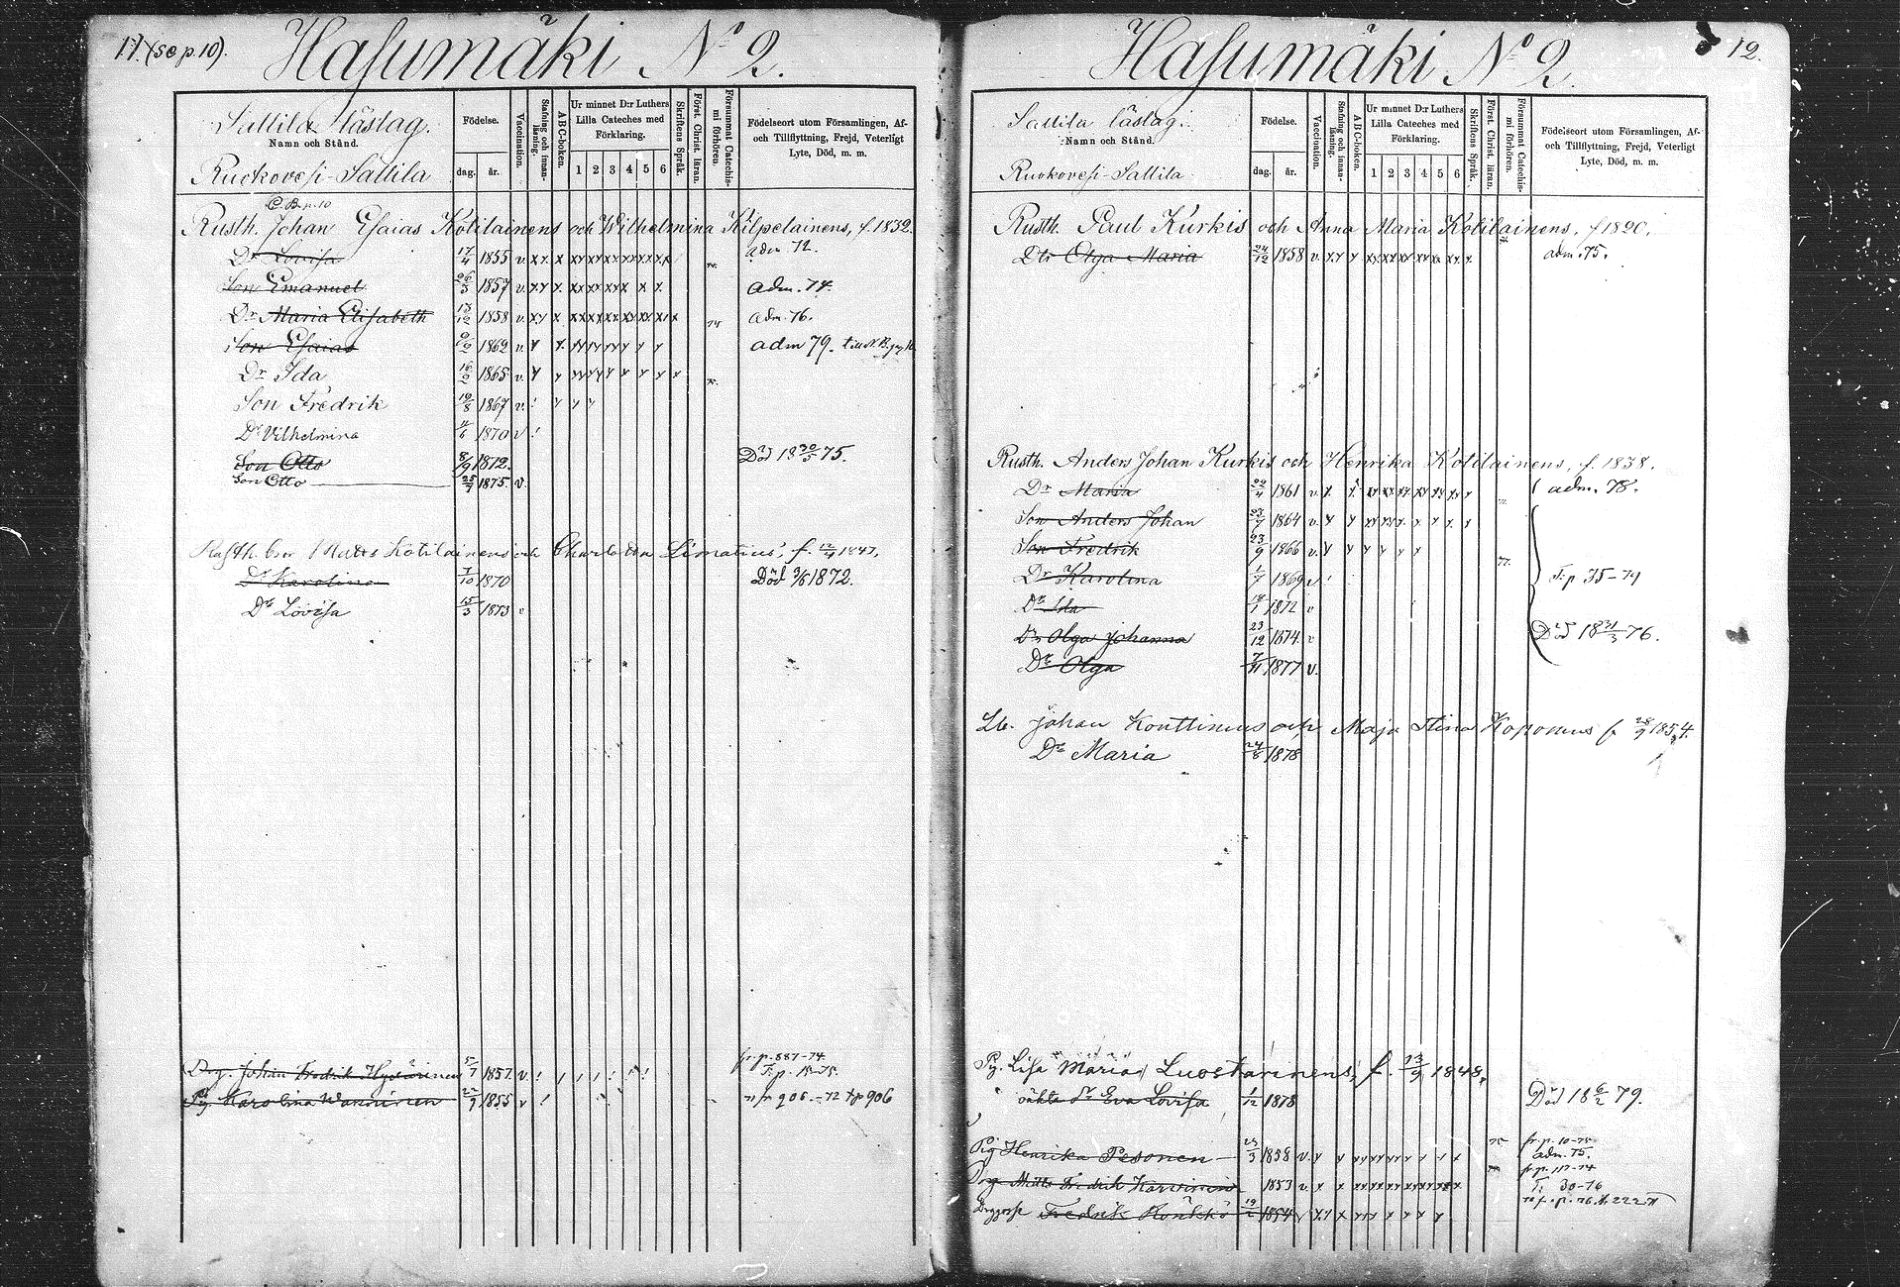 17. (se p. 10).
Hasumäki No 2.
Sallila läslag.
Namn och Stånd.
Ruokovesi-Sallila
Födelse.
dag. år.
Vaccination.
Stafning och innanläsning.
ABC-boken.
Ur minnet D:r Luthers
Lilla Cateches med
Förklaring.
1 2 3 4 5 6
Skriftens Språk.
Först. Christ. läran.
Försummat Catechismi förhören
Födelseort utom Församlingen, Af-
och Tillflyttning, Frejd, Veterligt
Lyte, Död, m. m.
C. B. p. 10
Rusth. Johan Esaias Kotilainens och Wilhelmina Kilpelainens, f. 1832.
Dr Lovisa 17/4 1855 v. adm. 72.
Son Emanuel 26/3 1857 v. adm. 74.
Dr Maria Elisabeth 13/12 1858 v. adm. 76.
Son Esaias 1862 v. adm 79.
Dr Ida 1865 v.
Son Fredrik 19/8 1867 v.
Dr Vilhelmina 1870 v
Son Otto 8/9 1872. Död 18 30/5 75.
Son Otto 1875. v.
Rusth. bror Matts Kotilainens och Charlotta Limatius, f. 12/4 1847.
Dr Karolina 7/10 1870 Död 1872.
Dr Lovisa 15/3 1873 v
Drg. Johan Fredrik Hyvärinen 5/7 1857 v. fr. p. 887-74
T. p. 18-75.
Pg. Karolina Wänninen 1855 v 906.-72 t p 906
12.
Hasumäki No 2.
Sallila läslag.
Namn och Stånd.
Ruokovesi-Sallila
Födelse.
dag. år.
Vaccination.
Stafning och innanläsning.
ABC-boken.
Ur minnet D:r Luthers
Lilla Cateches med
Förklaring.
1 2 3 4 5 6
Skriftens Språk.
Först. Christ. läran.
Försummat Catechismi förhören.
Födelseort utom Församlingen, Af-
och Tillflyttning, Frejd, Veterligt
Lyte, Död, m. m.
Rusth. Paul Kurkis och Anna Maria Kotilainens, f 1820.
Dtr Olga Maria 24/12 1858 v. adm. 75.
Rusth. Anders Johan Kurkis och Henrika Kotilainens, f. 1838.
Dr Maria 22/4 1861 v. adm. 78.
Son Anders Johan 1864 v.
Son Fredrik 23/9 1866 v.
Dr Karolina 1/7 1869 v T. p 35-79
Dr Ida 18/1 1872 v
Dr Olga Johanna 23/12 1874 v Död 18 31/3 76.
Dr Olga 7/11 1877 v.
Johan Konttinens och Maja Stina Koponens f 28/9 1854.
Dr Maria 24/6 1878
Pg. Lisa Maria Luostarinens, f. 23/9 1848.
oäkta dr Eva Lovisa 1/12 1878 Död 18 6/2 79.
Pig Henrika Pesonen 1858 v. fr. p. 10-75
adm. 75.
Drg Matts Fredrik Karvinen 1853 v. fr. p. 117-74
T. 30-76
Drggosse Fredrik Hänkkä 1854 v